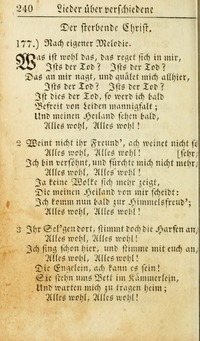 240 Lieder über verschiedene
Der sterbende Christ.
177.) Nach eigener Melodie.
Was ist wohl das, das reget sich in mir,
Ists der Tod? Ists der Tod?
Das an mir nagt, und quälet mich allhier,
Ists der Tod? Ists der Tod?
Ist dies der Tod, so werd ich bald
Befreit von Leiden mannigfalt;
Und meinen Heiland sehen bald,
Alles wohl, Alles wohl!
2 Weint nicht ihr Freund', ach weinet nicht so
Alles wohl, Alles wohl! [sehr,
Ich bin versöhnt, und fürchte mich nicht mehr,
Alles wohl, Alles wohl!
Ja keine Wolke sich mehr zeigt,
Die meinen Heiland von mir scheidt:
Ich komm nun bald zur Himmelsfreud';
Alles wohl, Alles wohl!
3 Ihr Sel'gen dort, stimmt doch die Harfen an,
Alles wohl, Alles wohl!
Ich sing schon hier, und stimme mit euch an,
Alles wohl, Alles wohl!
Die Engelein, ach kann es sein!
Sie stehn ums Bett im Kämmerlein,
Und warten mich zu tragen heim;
Alles wohl, Alles wohl!